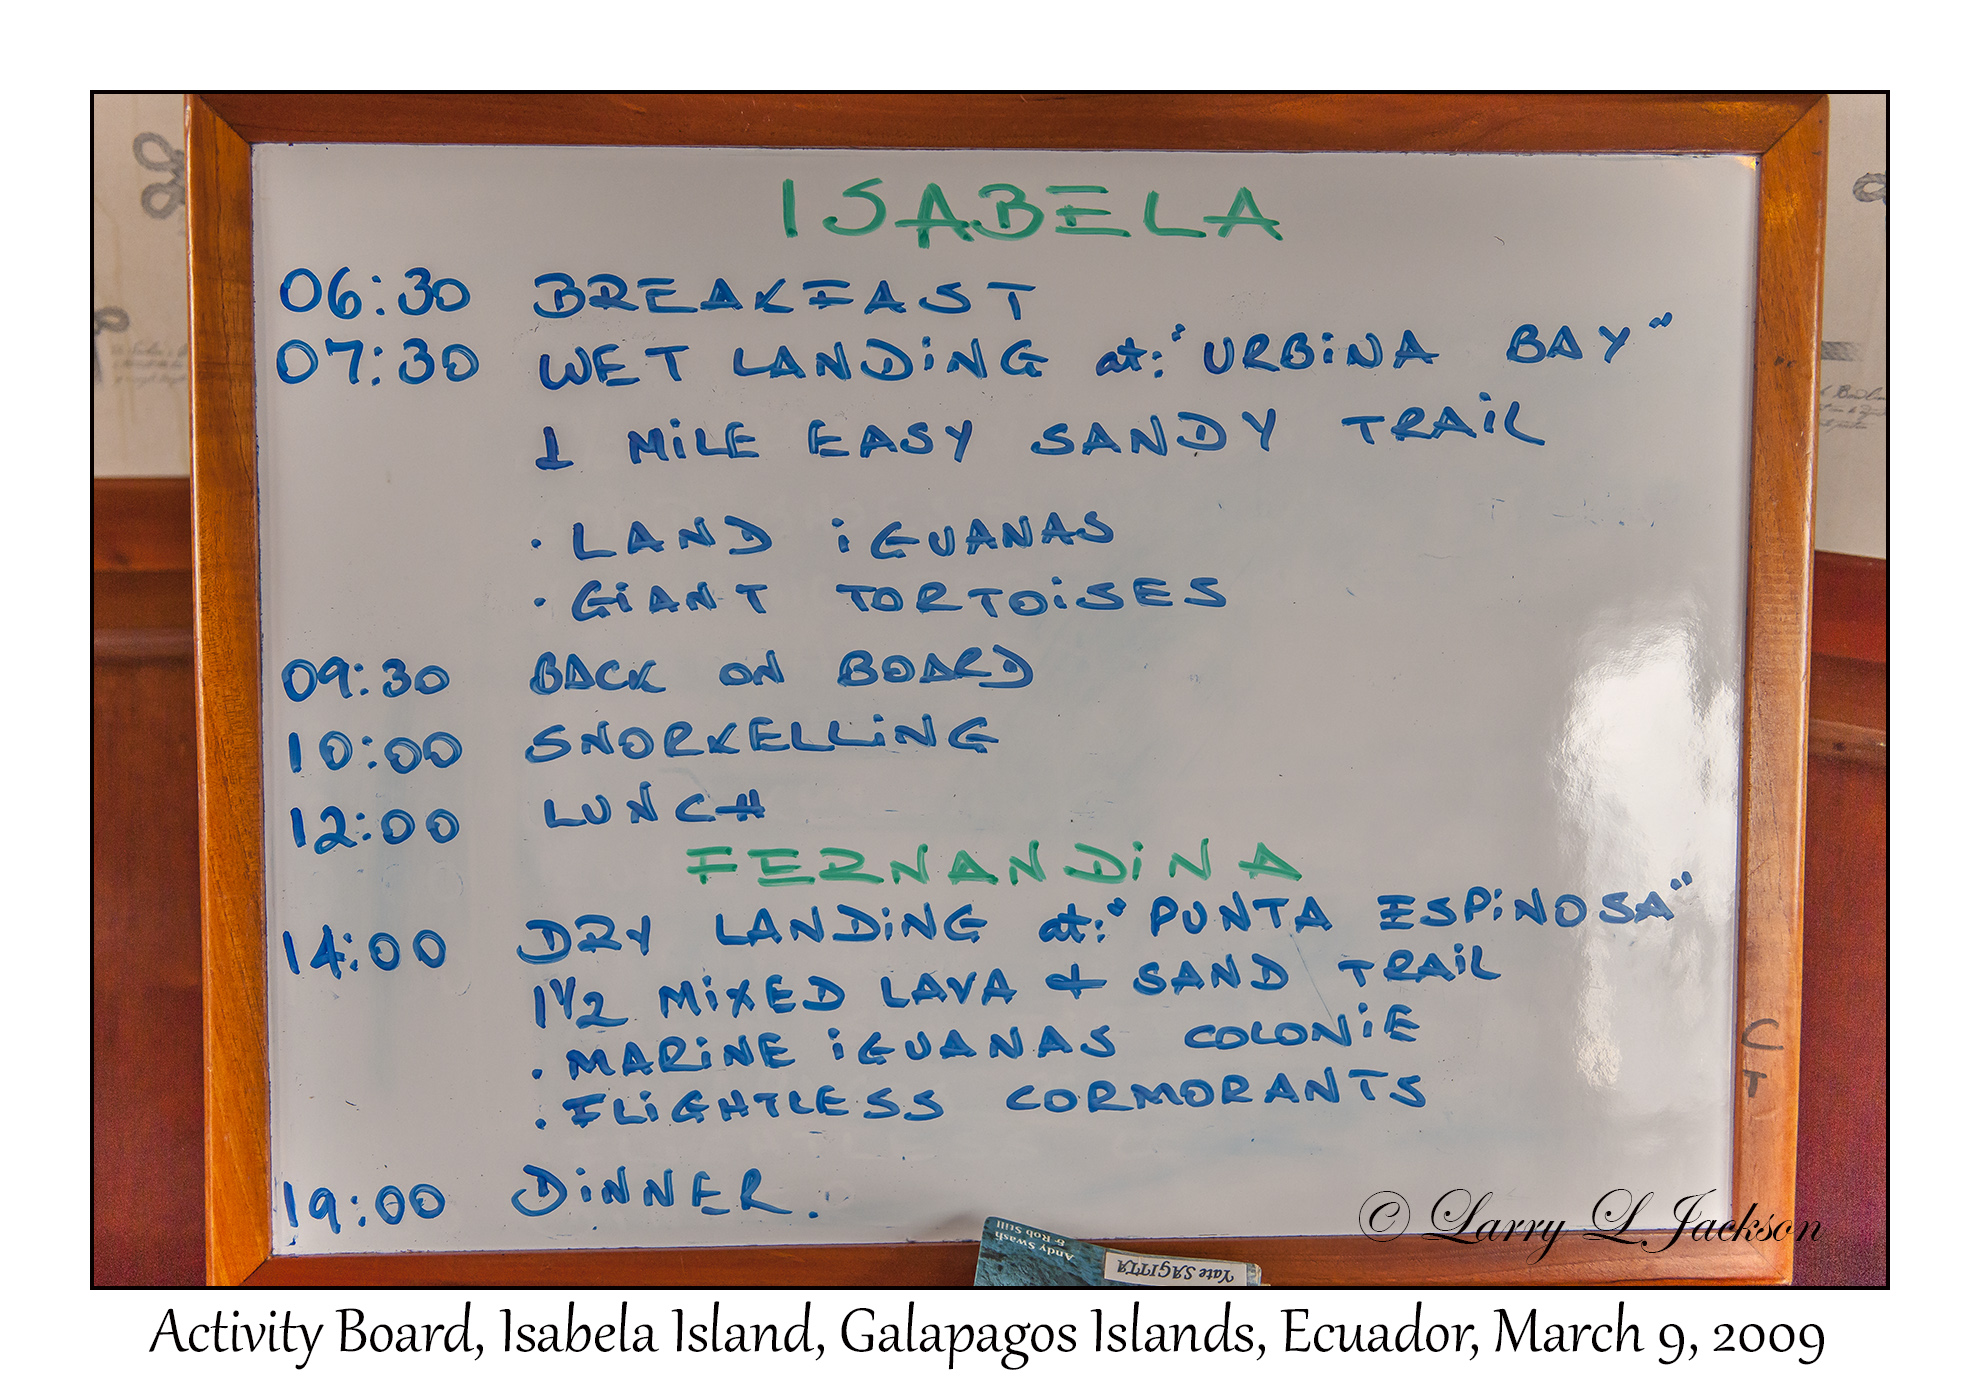 ISABELA
06:30 BREAKFAST
07:30 WET LANDiNG at: "URBiNA BAY"
1 MiLE EASY SANDY TRAiL
· LAND iGUANAS
· GiANT TORTOiSES
09:30 BACK ON BOARD
10:00 SNORKELLiNG
12:00 LUNCH
FERNANDiNA
14:00 DRY LANDiNG at: "PUNTA ESPiNOSA"
1 1/2 MiXED LAVA & SAND TRAiL
. MARiNE iGUANAS COLONiE
. FLiGHTLESS CORMORANTS
19:00 DiNNER.
C
T
Andy Swash
& Rob Still
Yate SAGITTA
© Larry L Jackson
Activity Board, Isabela Island, Galapagos Islands, Ecuador, March 9, 2009